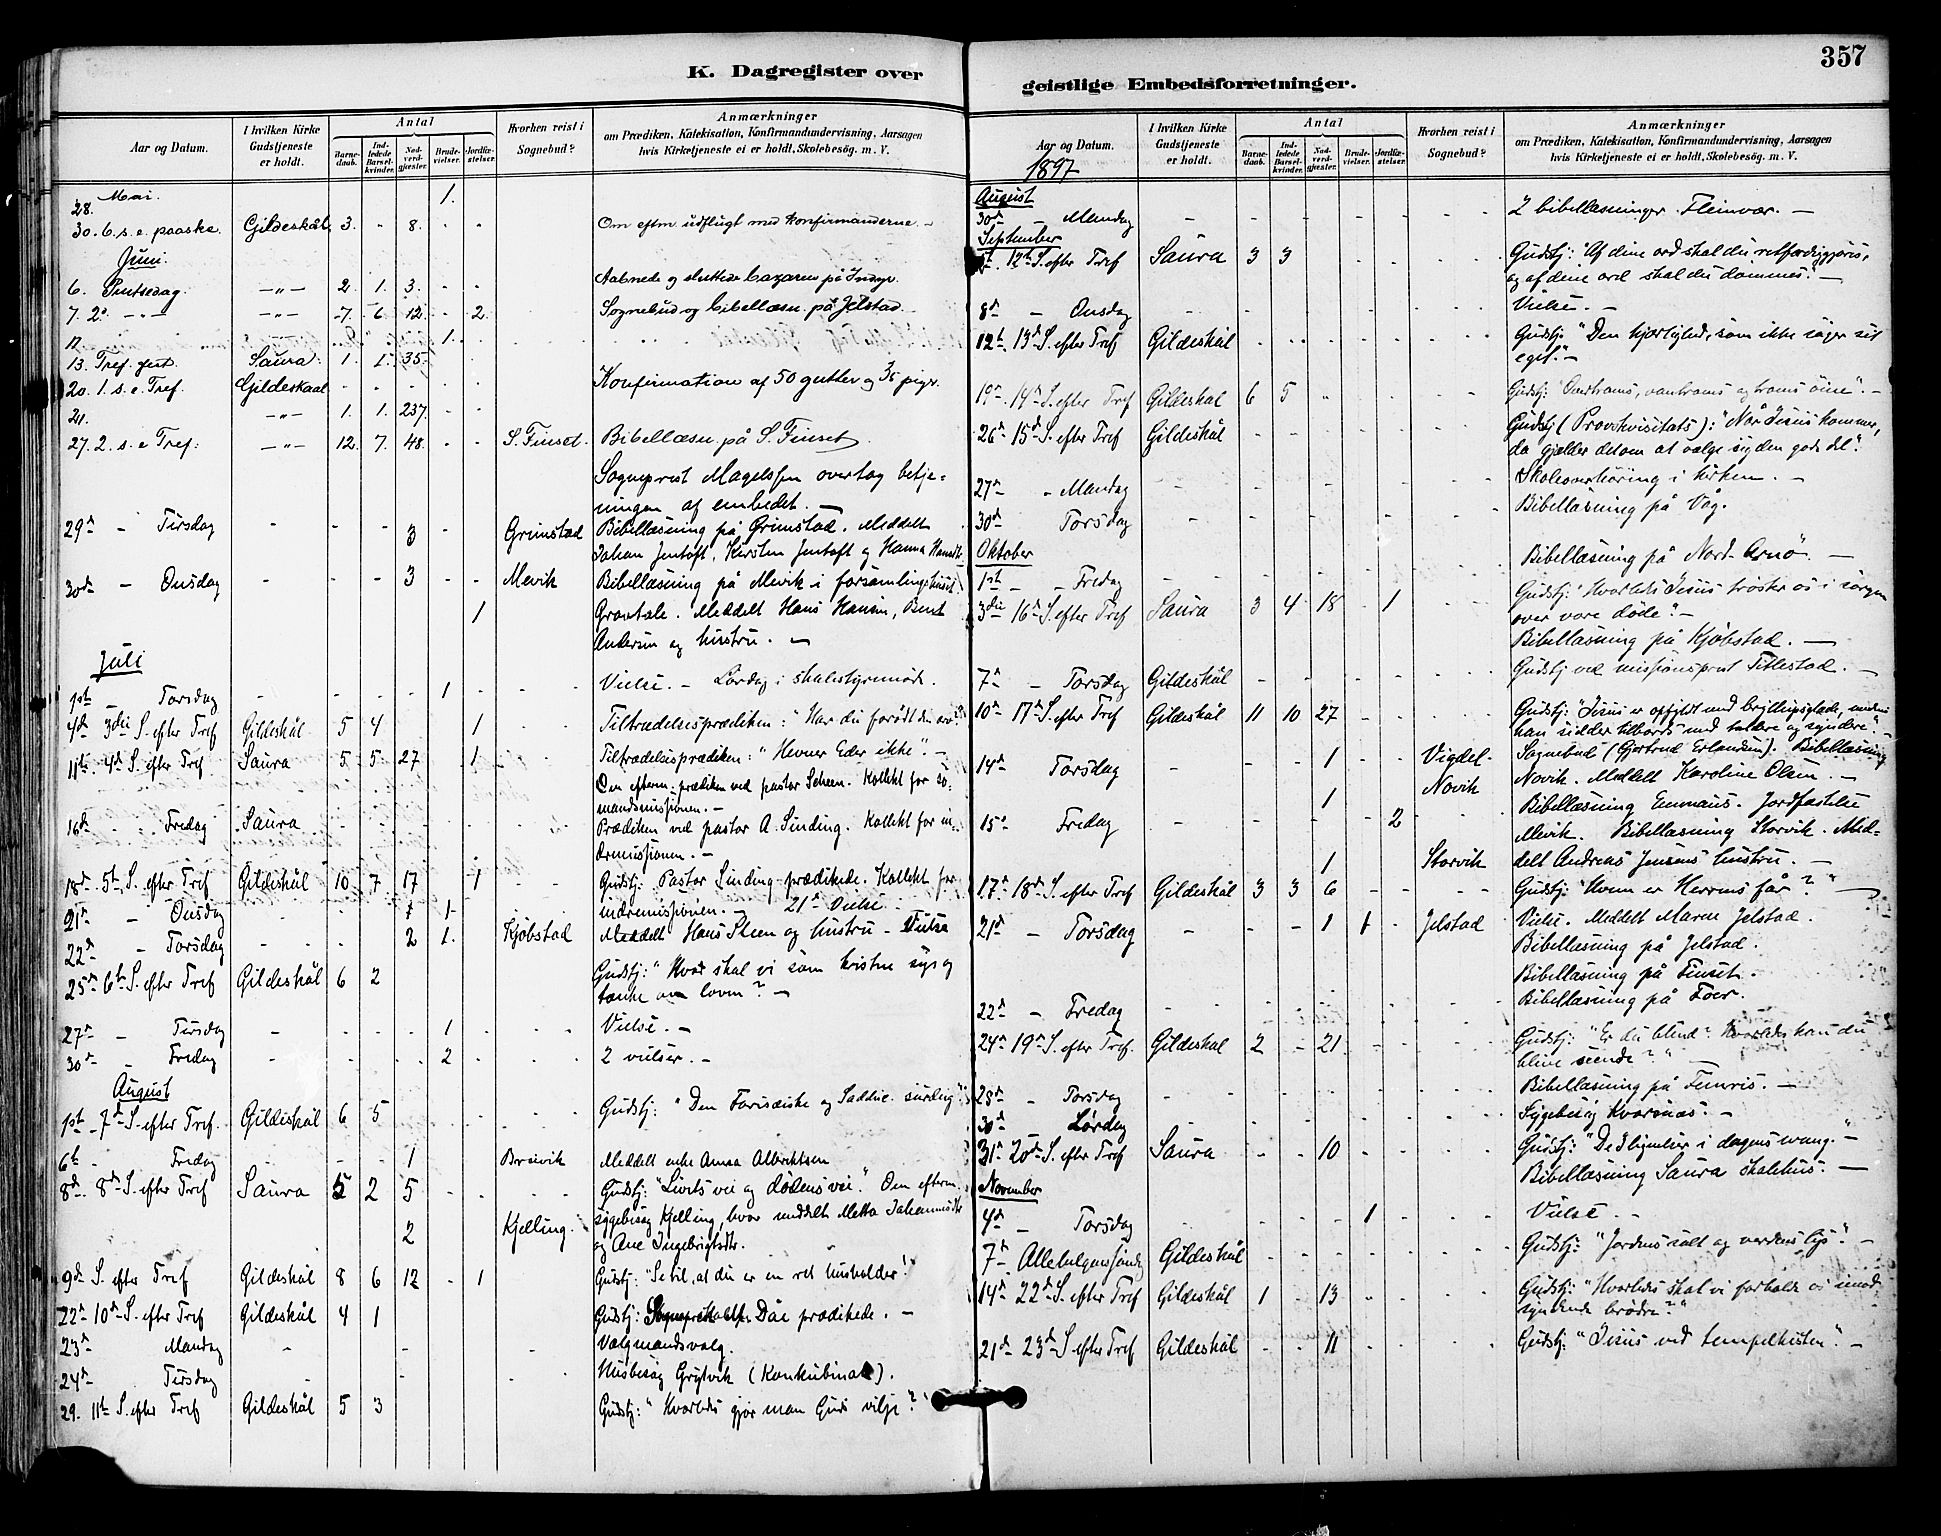 357
K. Dagregister over
geistlige Embedsforretninger.
Aar og Datum.
I hvilken Kirke Gudstjeneste er holdt.
Antal
Barnedaab.
Indledede Barselkvinder.
Nadverdgjæster.
Brudevielser.
Jordfæstelser.
Hvorhen reist i Sognebud?
Anmærkninger
om Prædiken, Katekisation, Konfirmandundervisning, Aarsagen
hvis Kirketjeneste ei er holdt, Skolebesög. m. V.
28. Mai. 1.
30. 6. s. e. paaske. Gildeskål 3. - 8. - - Om eftm udflugt med konfirmanderne. -
Juni.
6. Pintsedag. -"- 2. 1. 3. - - Aabnede og sluttede bazaren på Indyr.
7. 2. -"- -"- 7. 6 12. - 2. Sognebud og bibellæsn. på Jelstad.
11. 1.
13. Tref. fest. Saura. 1. 1. 35.
20. 1. s. e. Tref. Gildeskaal - - - - - Konfirmation af 50 gutter og 36 piger.
21. -"- 1. 1. 237. - -
27. 2. s. e Tref: -"- 12. 7. 48. - - S. Finset. Bibellæsn. på S. Finset.
Sogneprest Magelssen overtog betje-
ningen af embedet. -
29de - Tirsdag - - - 3 - Grimstad Bibellæsning på Grimstad. Meddelt
Johan Jentoft, Kirsten Jentoft og Hanna
30te - Onsdag - - - 3 - - Mevik Bibellæsning på Mevik i forsamlingshuset.
1 Gravtale. Meddelt Hans Hansen, Bernt
Andersen og hustru. -
Juli
1ste - Torsdag - - - - 1 - - Vielse. - Lördag i skolestyremöde.
4de 3die S. efter Tref Gildeskål 5 4 1 Tiltrædelsesprædiken: "Har du forödt din
11te. 4de S. efter Tref Saura 5 5 27 1 Tiltrædelsesprædiken: "Hevner Eder ikke". -
Om efterm. prædiken ved pastor Scheen. Kollekt for sö-
mandsmissionen. -
16de Fredag Saura - - - Prædiken ved pastor A. Sinding. Kollekt for in-
dremissionen. -
18de 5te S. efter Tref Gildeskål 10 7 17 1 Gudstj: Pastor Sinding prædikede. Kollekt for
indremissionen. - 21de Vielse
21de - Onsdag 1 1
22de - Torsdag - - 2 1. Kjöbstad Meddelt Hans Steen og hustru - Vielse
25de 6te S. efter Tref Gildeskål 6 2 Gudstj: "Hvad skal vi som kristne sige og
tænke om loven?" -
27de - Tirsdag - - - - 1 Vielse. -
30te - Fredag - - - - 2 2 vielser. -
August
1ste 7de S. efter Tref. Gildeskål 6 5 Gudstj: "Den Farisæiske og Saddue. surdeig".
6te - Fredag - - - 1 Breivik Meddelt enke Anna Albrichtsen
8de. 8de S. efter Tref Saura 5 2 5 - Gudstj: "Livets vei og dödens vei." Om efterm.
2 Kjelling. sygebesög Kjelling, hvor meddelt Metta Johannesdtr
og Ane Ingebrigtsdtr.
9de S. efter Tref Gildeskål 8 6 12 - 1 Gudstj: "Se til, at du er en ret husholder!"
22de 10de S. efter Tref Gildeskål 4 1 Gudstj: Dåe prædikede. -
23de Mandag - Valgmandsvalg.
24de Tirsdag - Husbesög Grytvik (Konkubinat).
29. 11te S. efter Tref Gildeskål 5 3 Gudstj: "Hvorledes gjör man Guds vilje?"
Aar og Datum.
1897
I hvilken Kirke Gudstjeneste er holdt.
Antal
Barnedaab.
Indledede Barselkvinder.
Nadverdgjæster.
Brudevielser.
Jordfæstelser.
Hvorhen reist i Sognebud?
Anmærkninger
om Prædiken, Katekisation, Konfirmandundervisning, Aarsagen
hvis Kirketjeneste ei er holdt, Skolebesög. m. V.
August
30te - Mandag - - - - 2 bibellæsninger. Fleinvær. -
September
12te S. efter Tref Saura 3 3 Gudstj: "Af dine ord skal du retfærdiggjöres,
og af dine ord skal du dömmes." -
8de - Onsdag - Vielse. -
12te. 13de S. efter Tref Gildeskål Gudstj: "Den kjærlighed, som ikke söger sit
eget." -
19de. 14de S. efter Tref Gildeskål 6 5 Gudstj: "Overtroens, vantroens og troens öine". -
26de 15de S. efter Tref Gildeskål Gudstj (Provstvisitats): "Når Jesus kommer,
da gjælder det om at vælge sig den gode del".
27de - Mandag Skoleoverhöring i kirken. -
30te Torsdag Bibellæsning på Våg.
Oktober
1ste - Fredag Bibellæsning på Nord-Arnö -
3die 16de S. efter Tref Saura 3 4 18 - 1 Gudstj: "Hvorledes Jesus tröster os i sorgen
over vore döde". -
Bibellæsning på Kjöbstad. -
7de - Torsdag Gildeskål Gudstj ved missionsprest Titlestad. -
10de 17de S. efter Tref Gildeskål 11 10 27 Gudstj: "Jesus er opfyldt med bryllupsglæde, medens
han sidder tilbords med toldere og syndere". -
14de Torsdag 1 Vigdel- Sognebud (Gjertrud Erlandsen). Bibellæsning
1 Novik Novik. Meddelt Karoline Olsen. -
15de Fredag - 2 Bibellæsning Emmaus. Jordfæstelse
Mevik. Bibellæsning Storvik. Med-
1 Storvik delt Andreas Jensens hustru. -
17de 18de S. efter Tref Gildeskål 3 3 6 - Gudstj: "Hvem er Herrens får?" -
21de - Torsdag 1 1 - Jelstad Vielse. Meddelt Maren Jelstad.
Bibellæsning på Jelstad.
Bibellæsning på Finset.
22de - Fredag Bibellæsning på Foer.
24de 19de S. efter Tref. Gildeskål 2 - 21 Gudstj: "Er du blind? Hvorledes kan du
blive seende?" -
28de - Torsdag Bibellæsning på Femris. -
30te - Lördag Sygebesög Kvarsnæs. -
31te 20de S. efter Tref Saura - - 10 Gudstj: "De 3 lignelser i dagens evang." -
Bibellæsning Saura skolehus. -
November
4de - Torsdag 1 Vielse. -
7de - Allehelgenssöndag Gildeskål Gudstj: "Jordens salt og verdens lys". -
14de 22de S. efter Tref Gildeskål 1 - 13 Gudstj: "Hvorledes skal vi forholde os imod
syndende brödre?"
21de 23de S. efter Tref Gildeskål - - 11 Gudstj: "Jesus ved tempelkisten". -